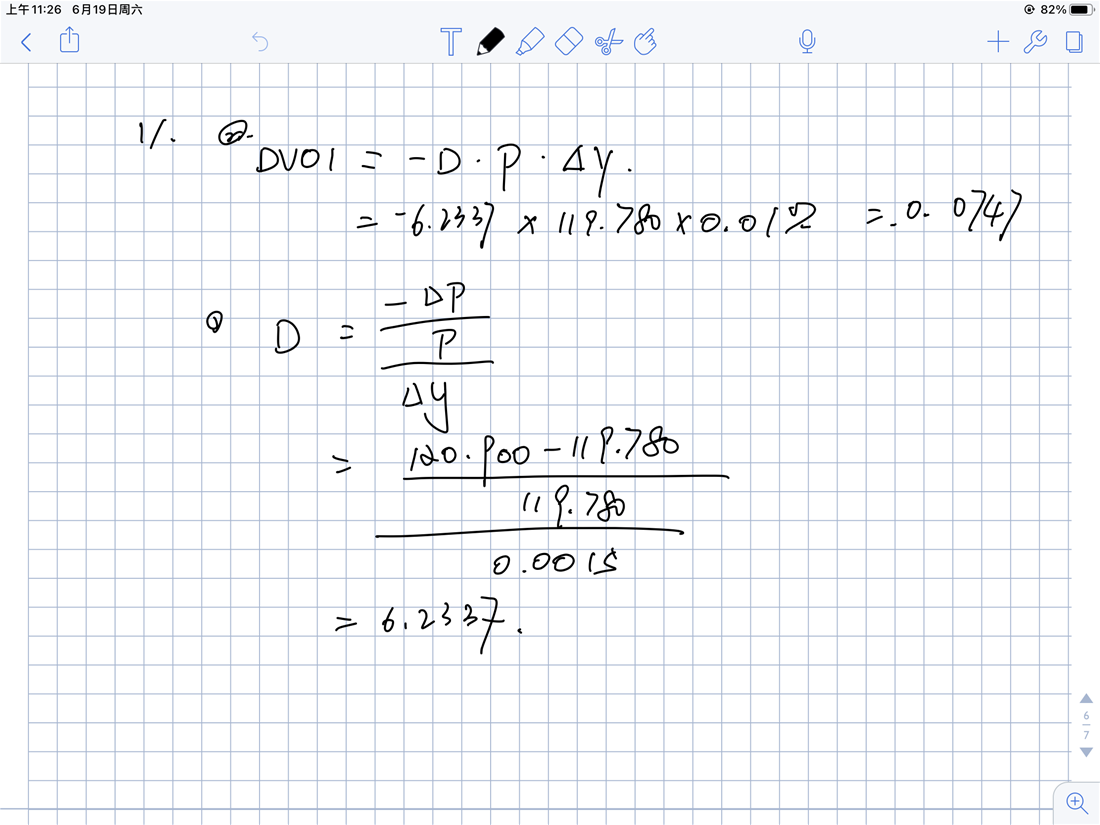 上午11:26 6月19日周六
82%
T
1/. ②.
DV01 = -D · P · Δy.
= -6.2337 × 119.780 × 0.01% = -0.0747
① D = 
-ΔP
P
Δy
= 
120.900 - 119.780
119.780
0.0015
= 6.2337.
6
7